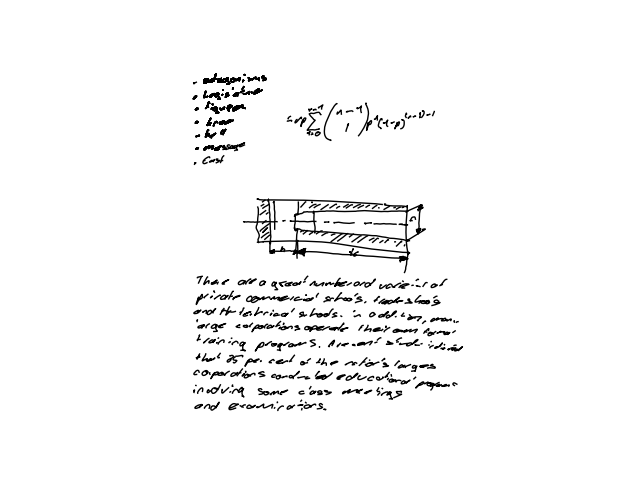 • antagonisms
• Legislative
• figures
• tree
• message
• Cost
= np \sum_{1=0}^{n-1} \binom{n-1}{1} p^1 (1-p)^{(n-1)-1}
There are a great number and varieties of
private commercial schools, trade schools
and technical schools. In addition, many
large corporations operate their own formal
training programs. A recent study indicated
that 25 per cent of the nation's largest
corporations conducted educational programs
involving some class meetings
and examinations.